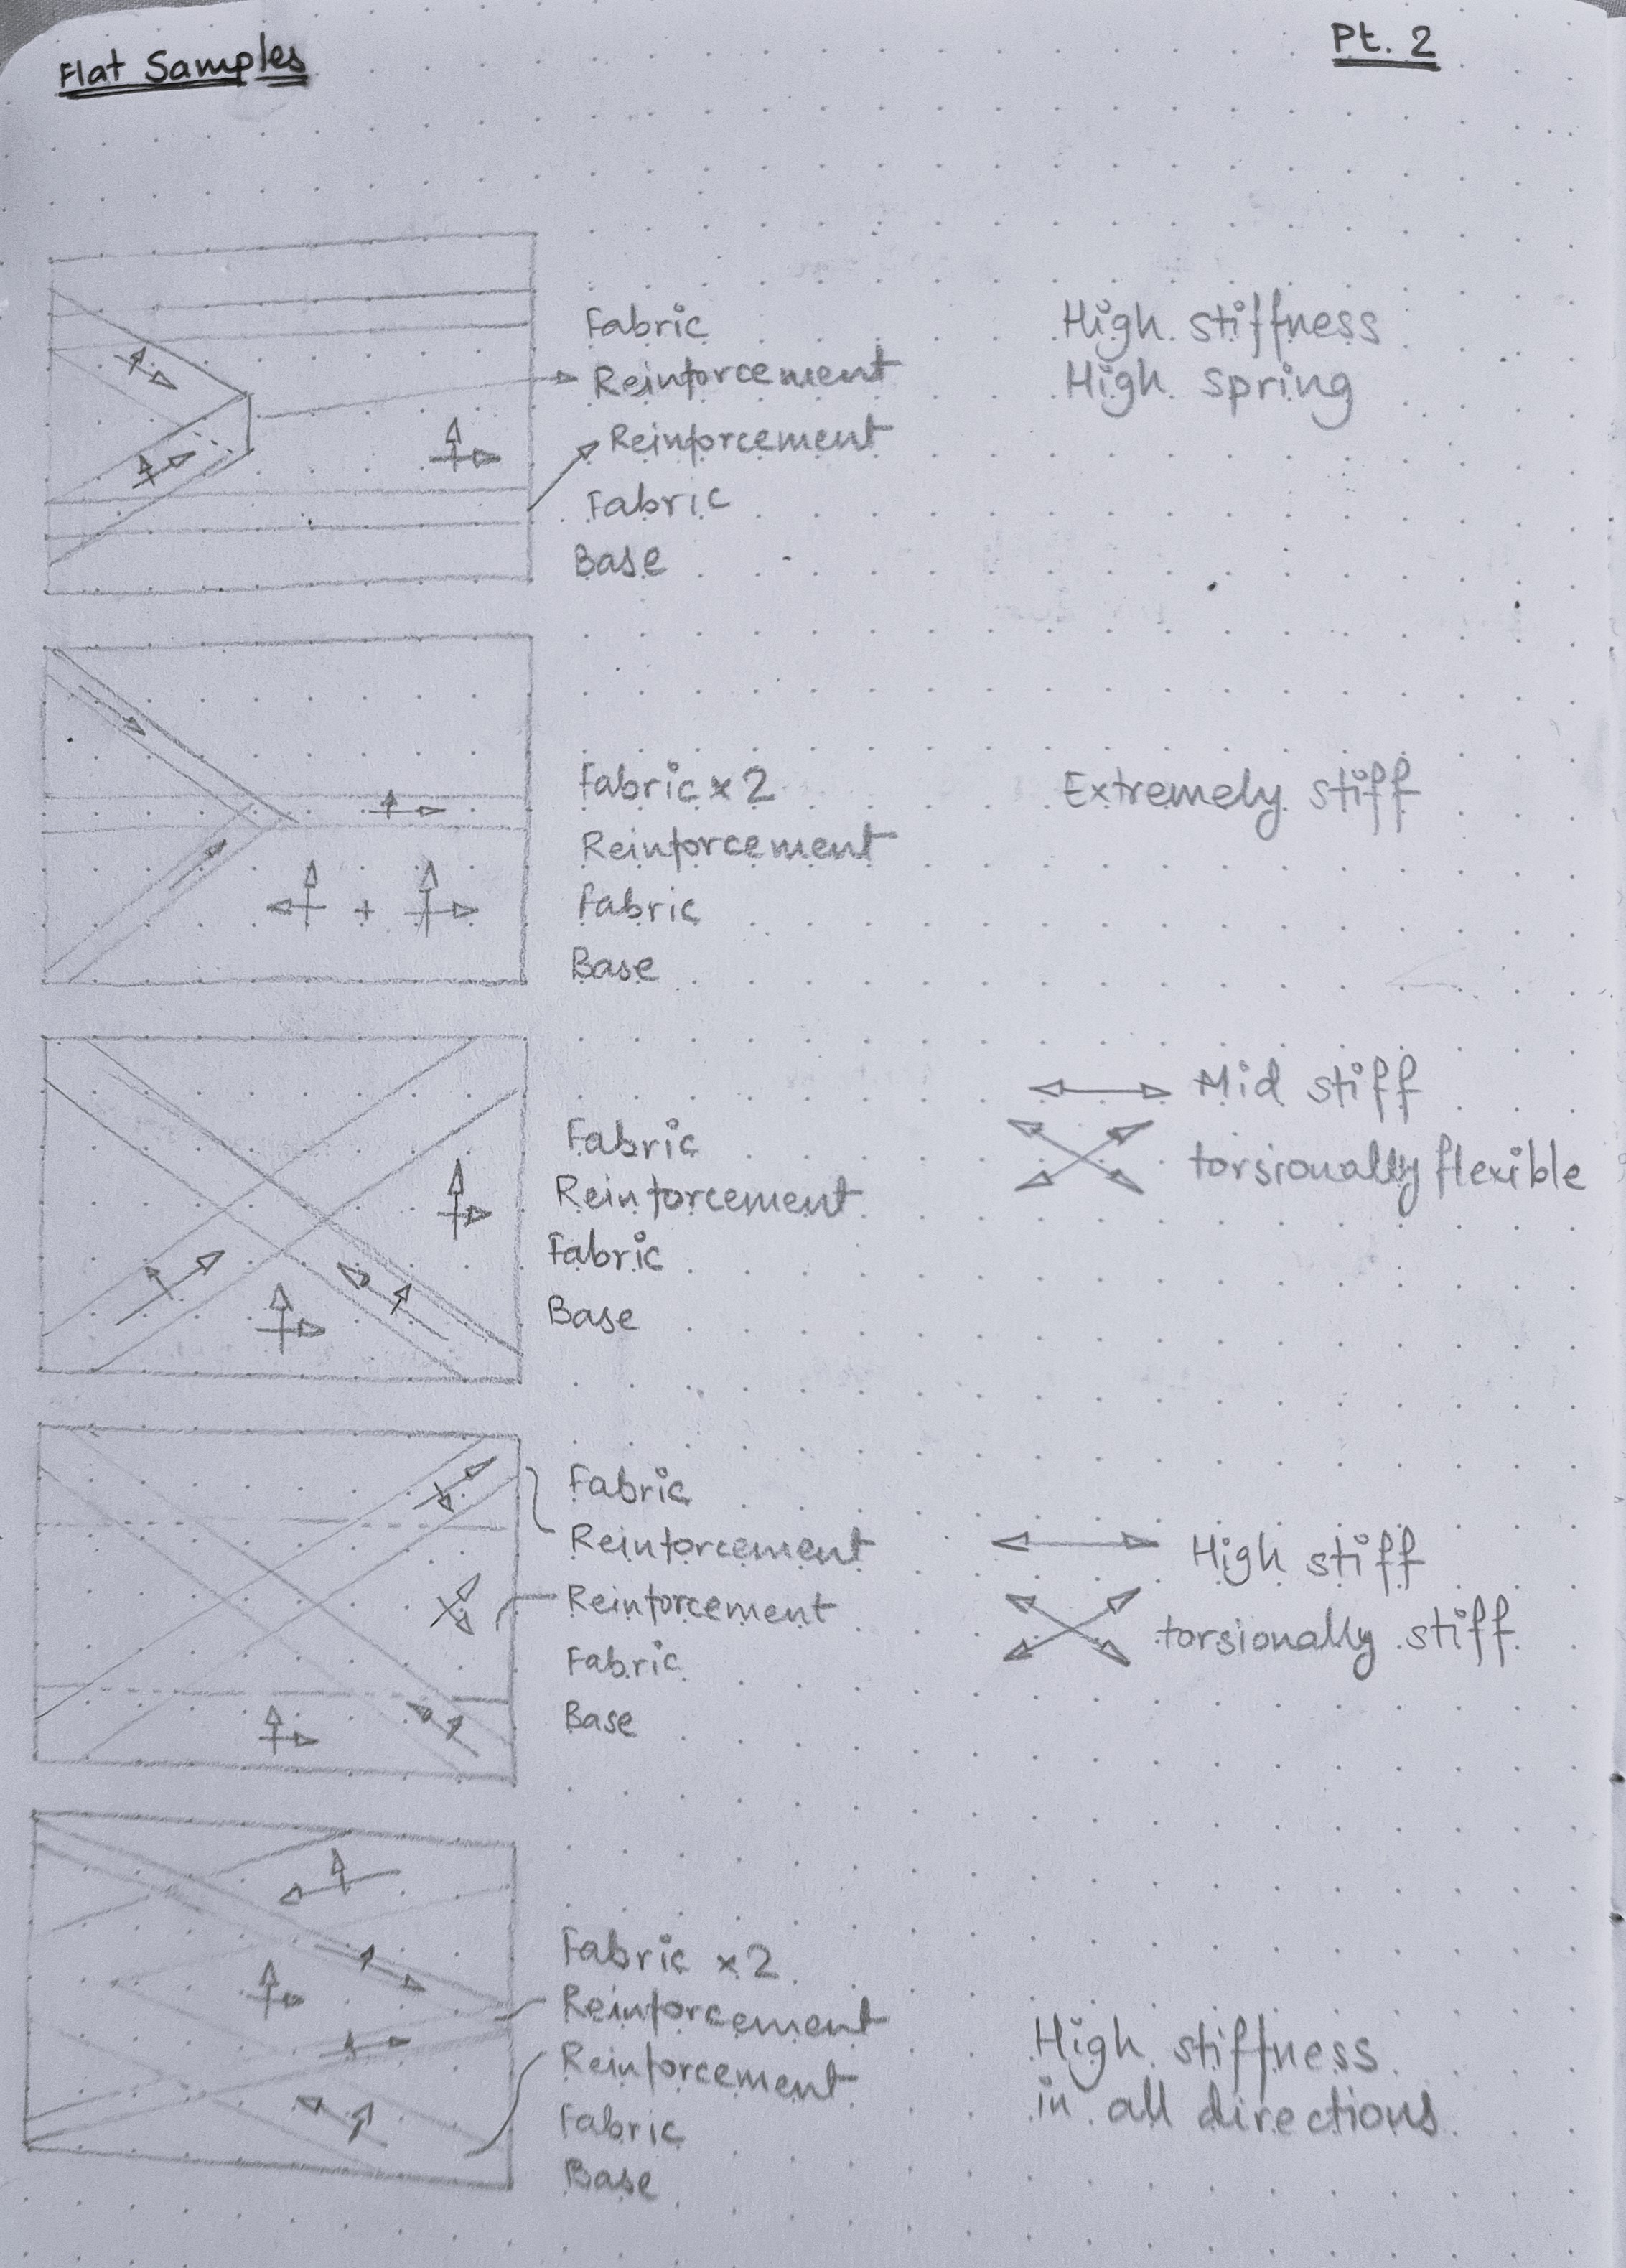 Flat Samples
Pt. 2
Fabric
Reinforcement
Reinforcement
Fabric
Base
High stiffness
High spring
Fabric x 2
Reinforcement
Fabric
Base
+
Extremely stiff
Fabric
Reinforcement
Fabric
Base
Mid stiff
torsionally flexible
Fabric
Reinforcement
Reinforcement
Fabric
Base
High stiff
torsionally stiff
Fabric x2
Reinforcement
Reinforcement
Fabric
Base
High stiffness
in all directions